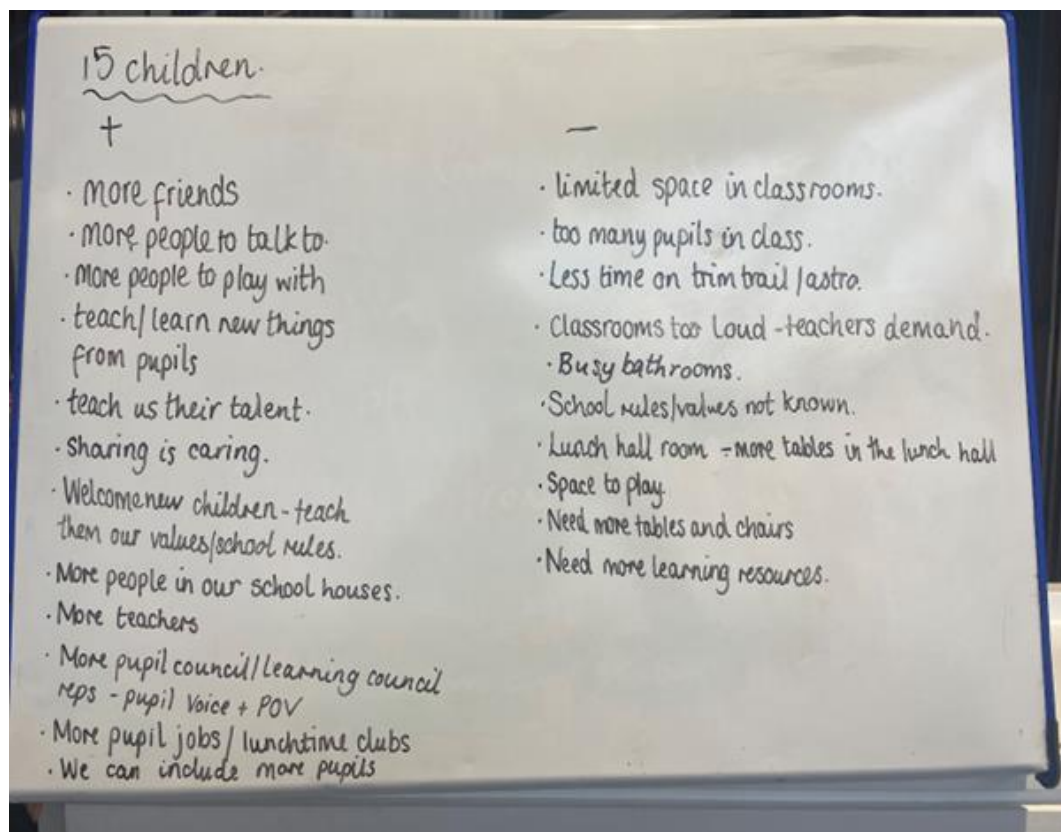 15 children.
+
· more friends
· more people to talk to.
· more people to play with
· teach/learn new things
from pupils
· teach us their talent.
· Sharing is caring.
· Welcome new children - teach
them our values/school rules.
· More people in our school houses.
· More teachers
· More pupil council/learning council
reps - pupil Voice + POV
· More pupil jobs/lunchtime clubs
· We can include more pupils
−
· limited space in classrooms.
· too many pupils in class.
· Less time on trim trail/astro.
· Classrooms too Loud - teachers demand.
· Busy bathrooms.
· School rules/values not known.
· Lunch hall room - more tables in the lunch hall
· Space to play
· Need more tables and chairs
· Need more learning resources.